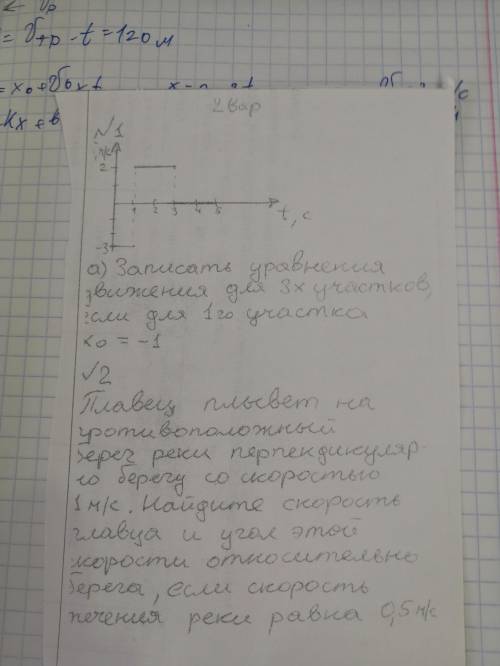 = Vтр · t = 120 м
2 вар
№1
м/с
2
1 2 3 4 5
t, с
-3
а) Записать уравнения
движения для 3х участков,
если для 1го участка
x₀ = -1
√2
Плавец плывет на
противоположный
берег реки перпендикуляр
но берегу со скоростью
1 м/с. Найдите скорость
плавца и угол этой
скорости относительно
берега, если скорость
течения реки равна 0,5 м/с